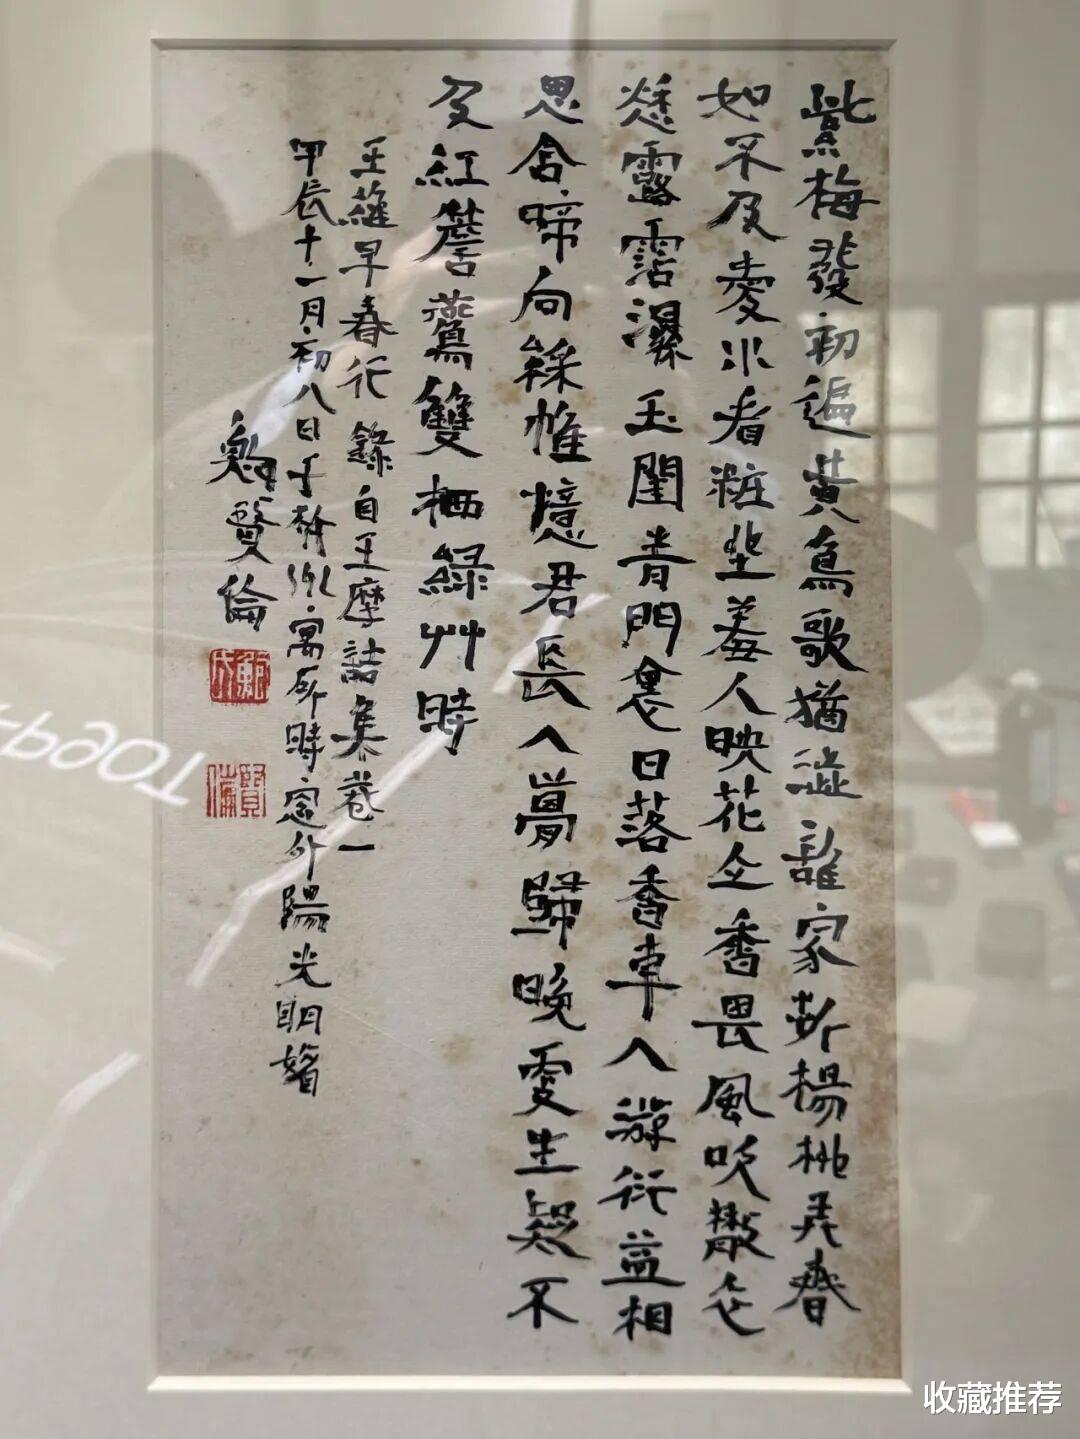 紫梅發初遍黃鳥歌猶澀誰家折楊桃弄春
如不及愛水看粧坐羞人映花立香畏風吹散衣
愁露霑濕玉閨青門裏日落香車入游衍益相
思含啼向綵帷憶君長入夢歸晚更生疑不
及紅簷鷰雙栖綠艸時
王維早春行 錄自王摩詰集卷一
甲辰十一月初八日于州寓所時窗外陽光明媚
鮑賢倫
鮑氏
賢倫
收藏推荐